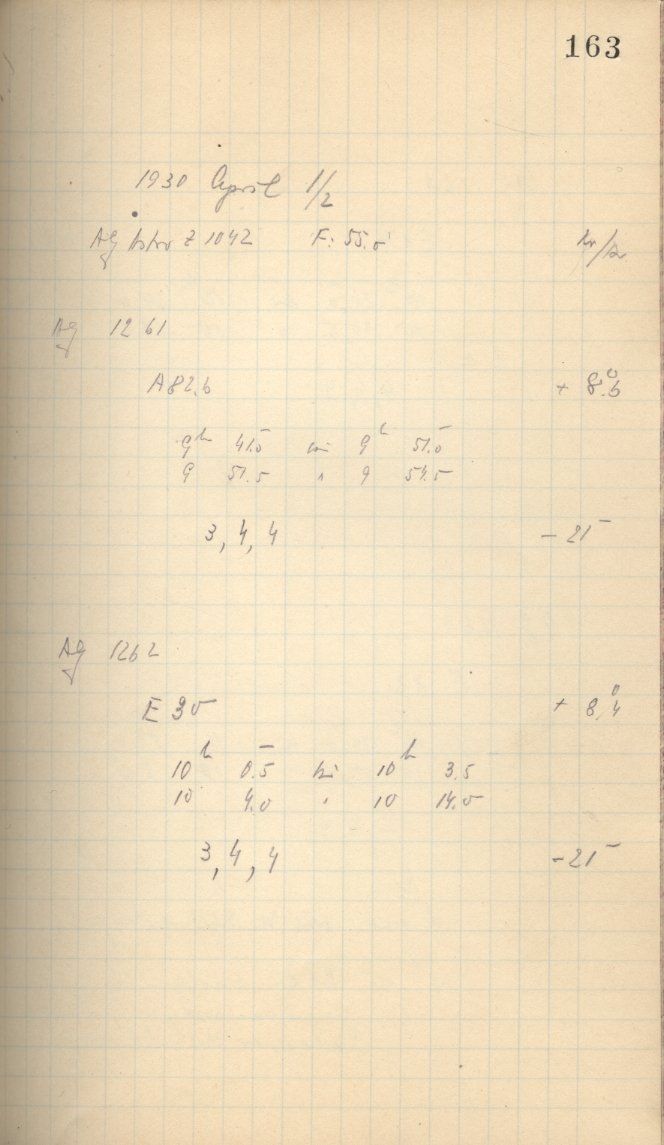 163
1930 April 1/2
Ag Astro Z 1042 F: 55.0
Ag 1261
A 82.6 + 8.°6
9h 41.0m bis 9h 51.0m
9 51.5 " 9 54.5
3, 4, 4 - 21m
Ag 1262
E 30 + 8.°4
10h 0.5m bis 10h 3.5
10 4.0 " 10 14.0
3, 4, 4 - 21m